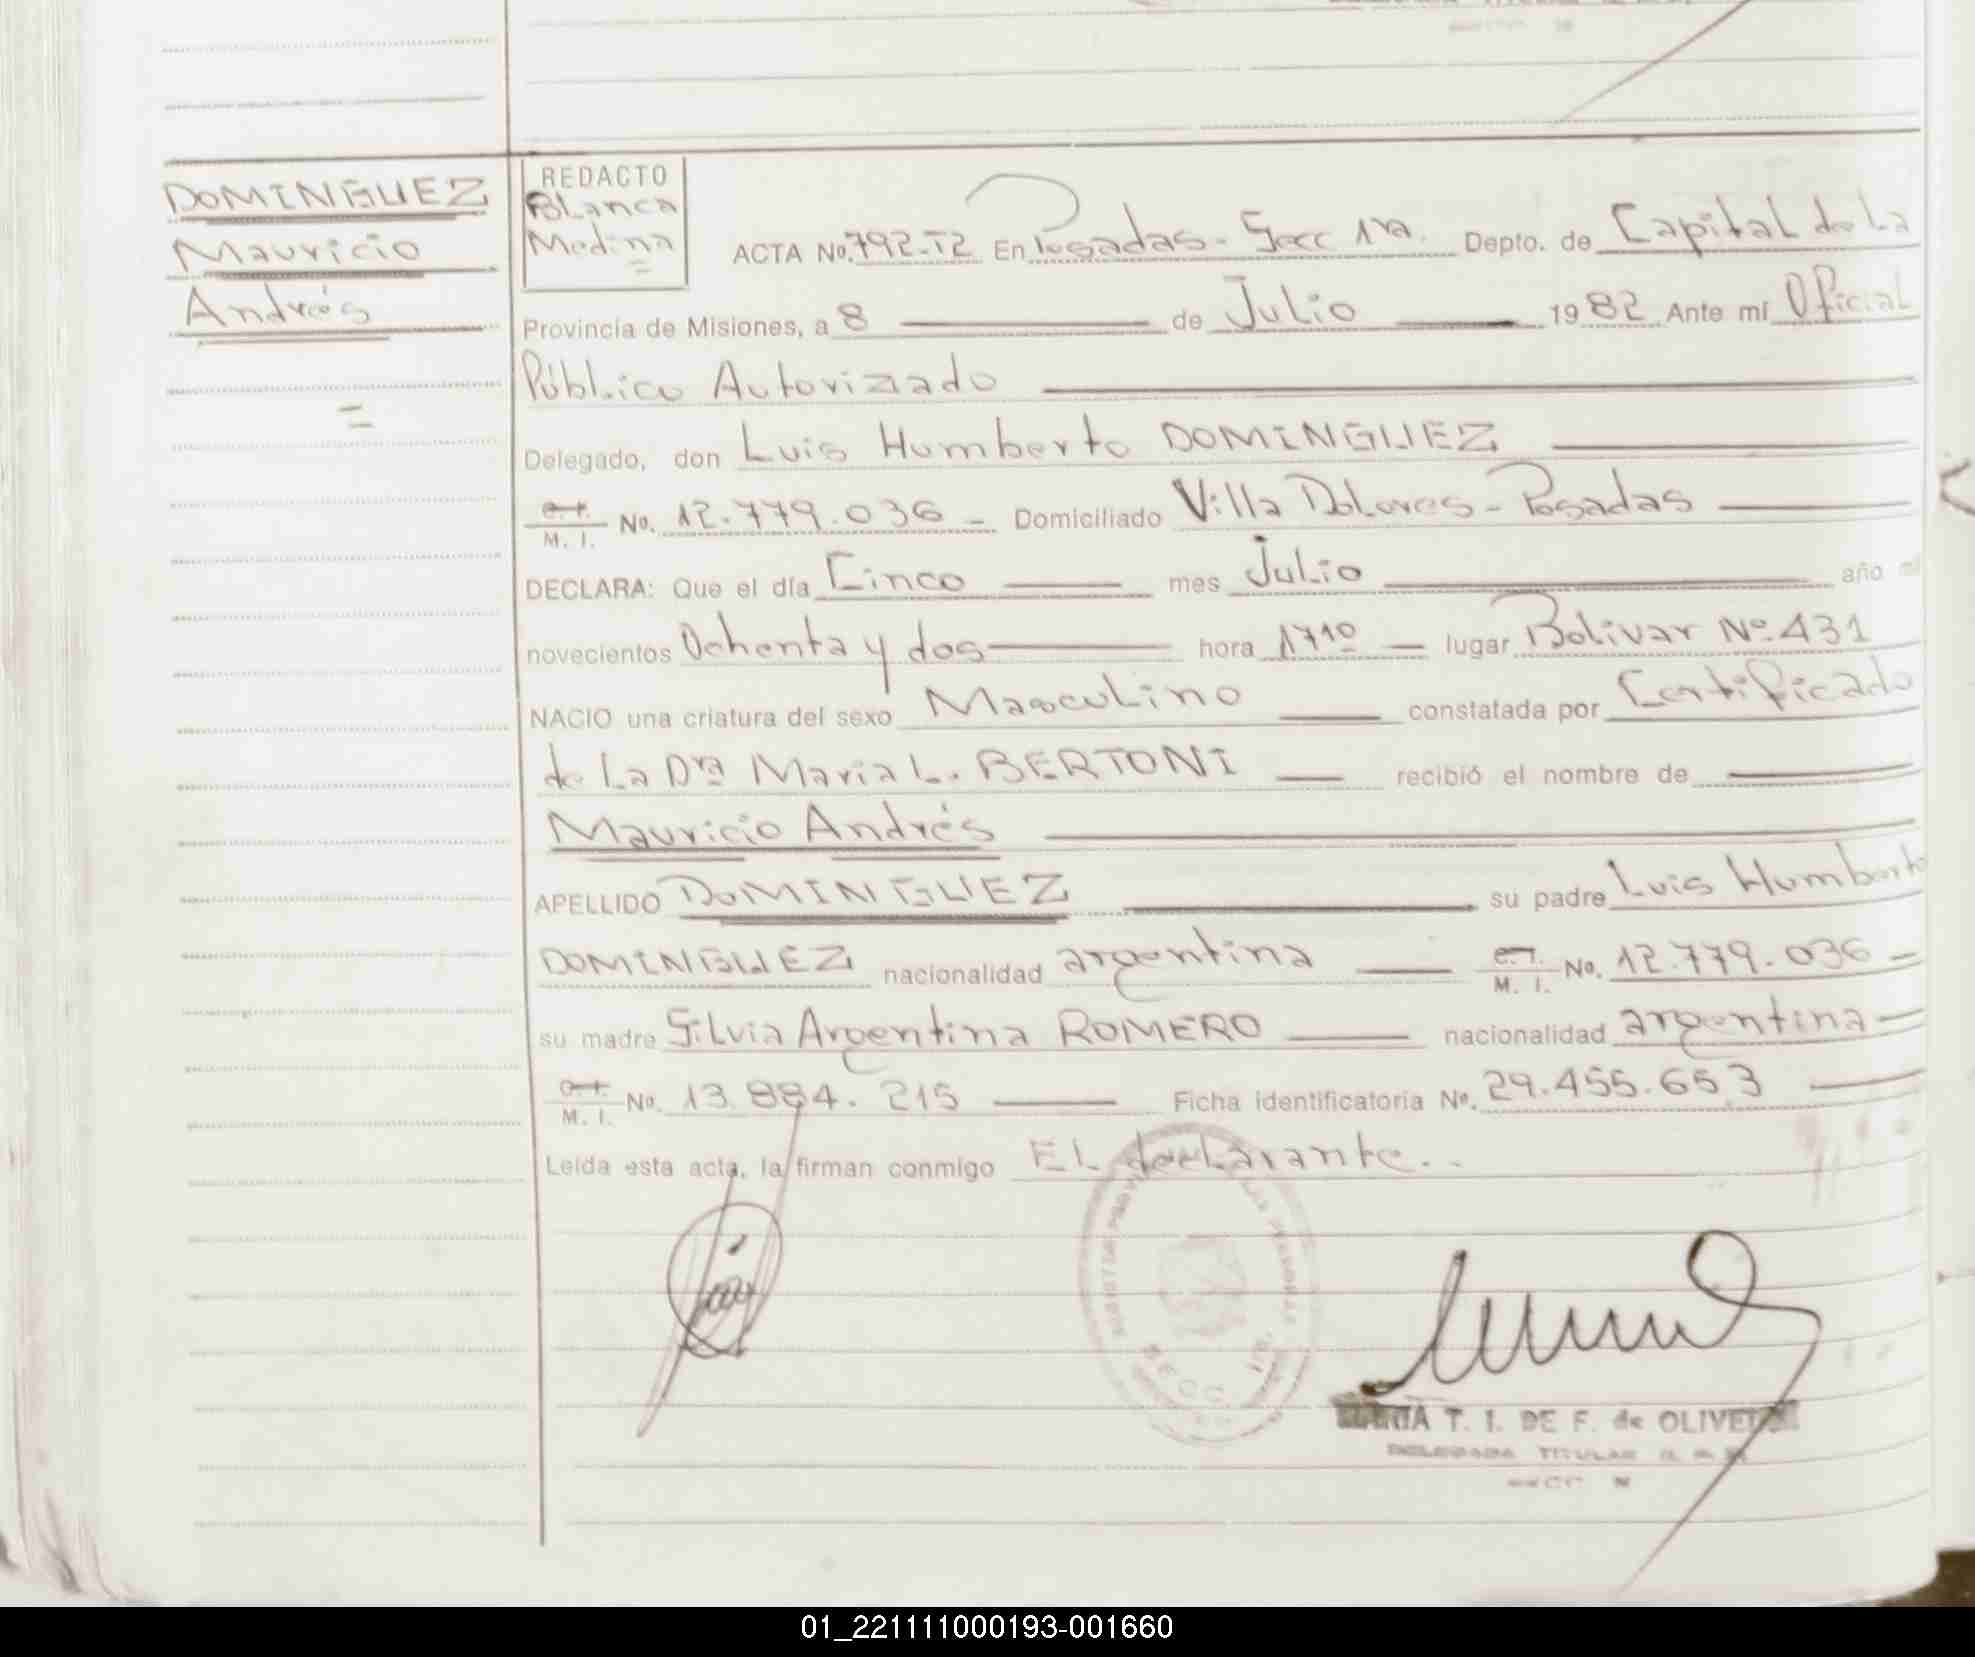 DOMINGUEZ
Mauricio
Andrés
REDACTO
Blanca
Medina
ACTA No. 792-T2 En Posadas - Secc 1ra. Depto. de Capital de la
Provincia de Misiones, a 8 de Julio 1982 Ante mí Oficial
Público Autorizado
Delegado, don Luis Humberto DOMINGUEZ
C.I. M. I. No. 12.779.036 - Domiciliado Villa Dolores - Posadas
DECLARA: Que el día Cinco mes Julio año mil
novecientos Ochenta y dos hora 17 10 lugar Bolivar Nº 431
NACIO una criatura del sexo Masculino constatada por Certificado
de la Dra Maria L. BERTONI recibió el nombre de
Mauricio Andrés
APELLIDO DOMINGUEZ su padre Luis Humberto
DOMINGUEZ nacionalidad argentina C.I. M. I. No. 12.779.036 -
su madre Silvia Argentina ROMERO nacionalidad argentina
C.I. M. I. No. 13.884.215 Ficha identificatoria No. 29.455.653
Leída esta acta, la firman conmigo El declarante..
SECC. 1ra.
T. I. DE F. de OLIVEIRA
DELEGADA TITULAR
01_221111000193-001660